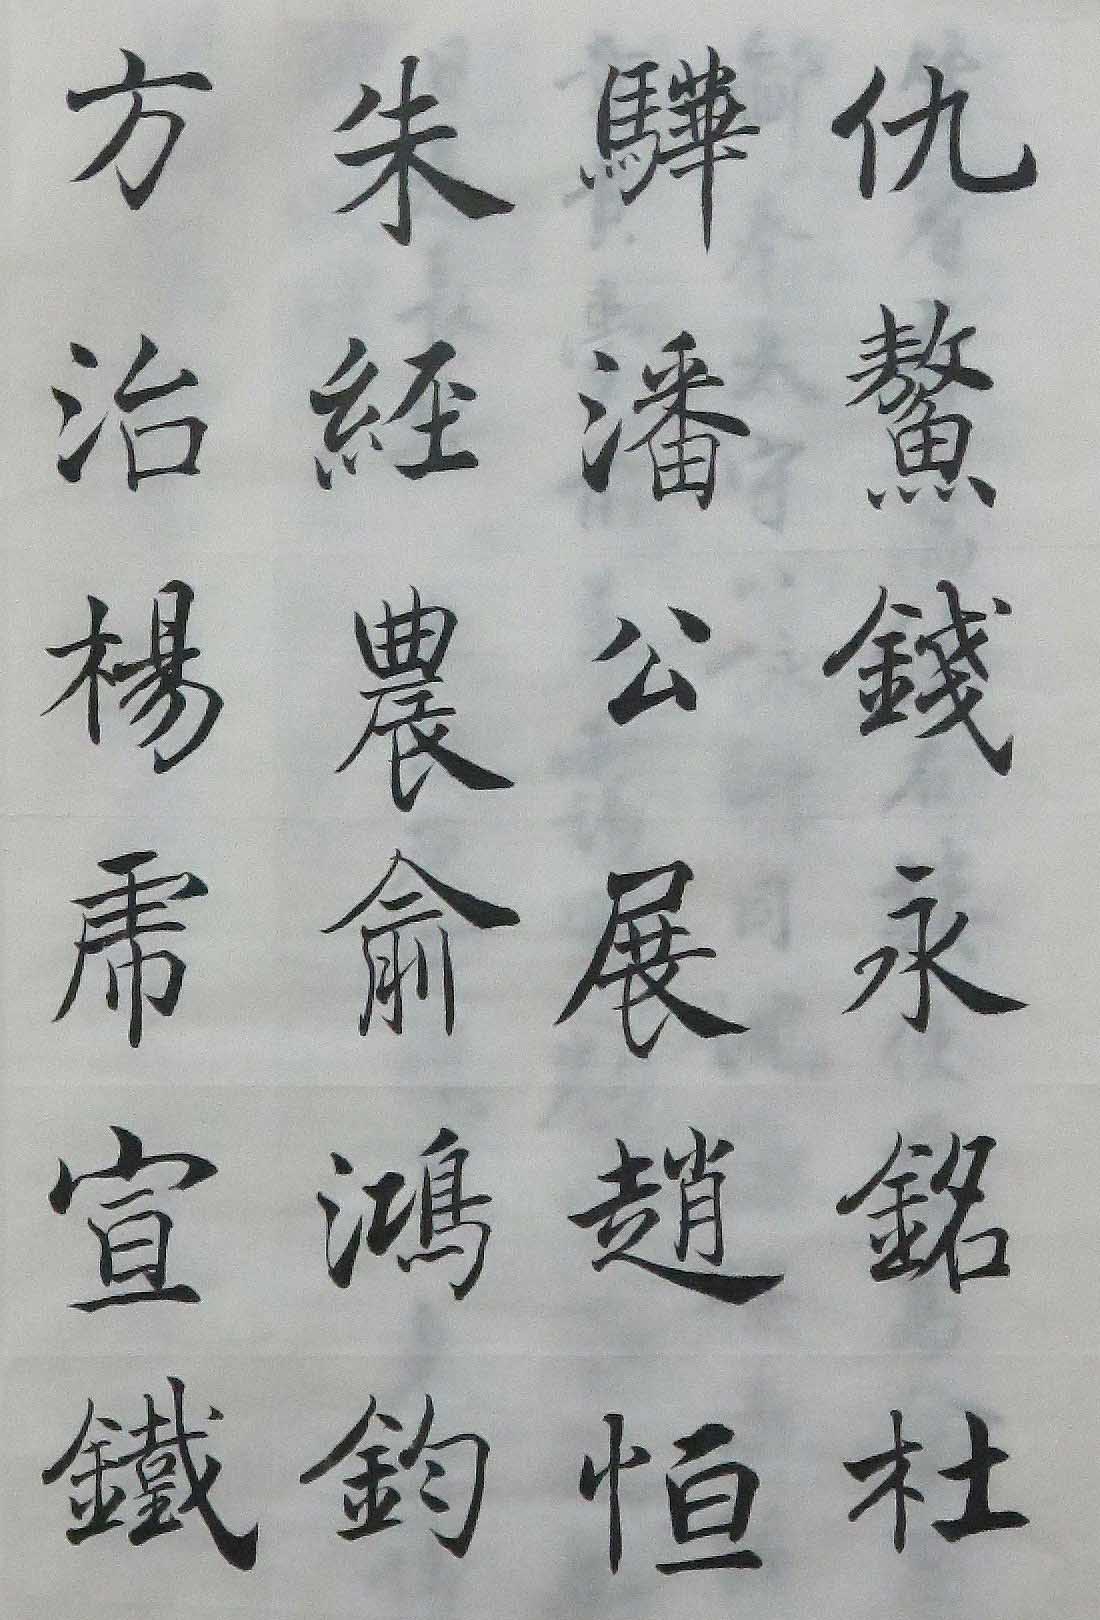 仇鰲錢永銘杜
驊潘公展趙恒
朱經農俞鴻鈞
方治楊虎宣鐵